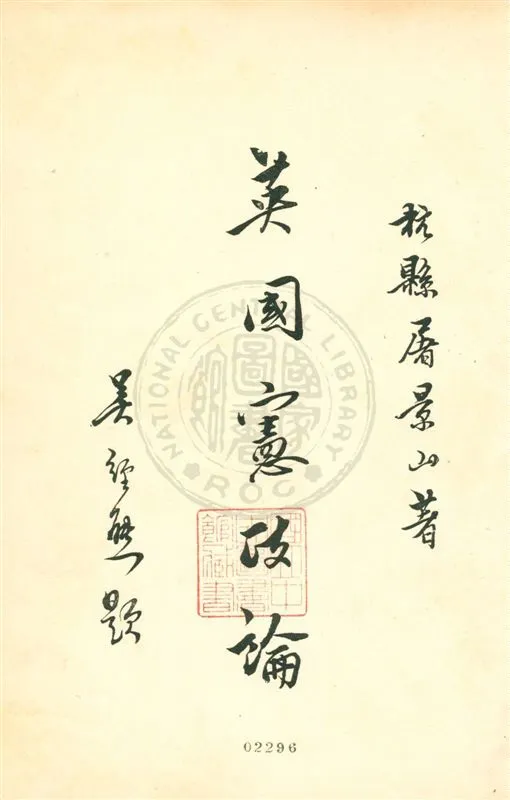 杭縣屠景山著
英國憲政論
吳經熊題
NATIONAL CENTRAL LIBRARY
ROC
國家圖書館
國立中央圖書館藏書
02296